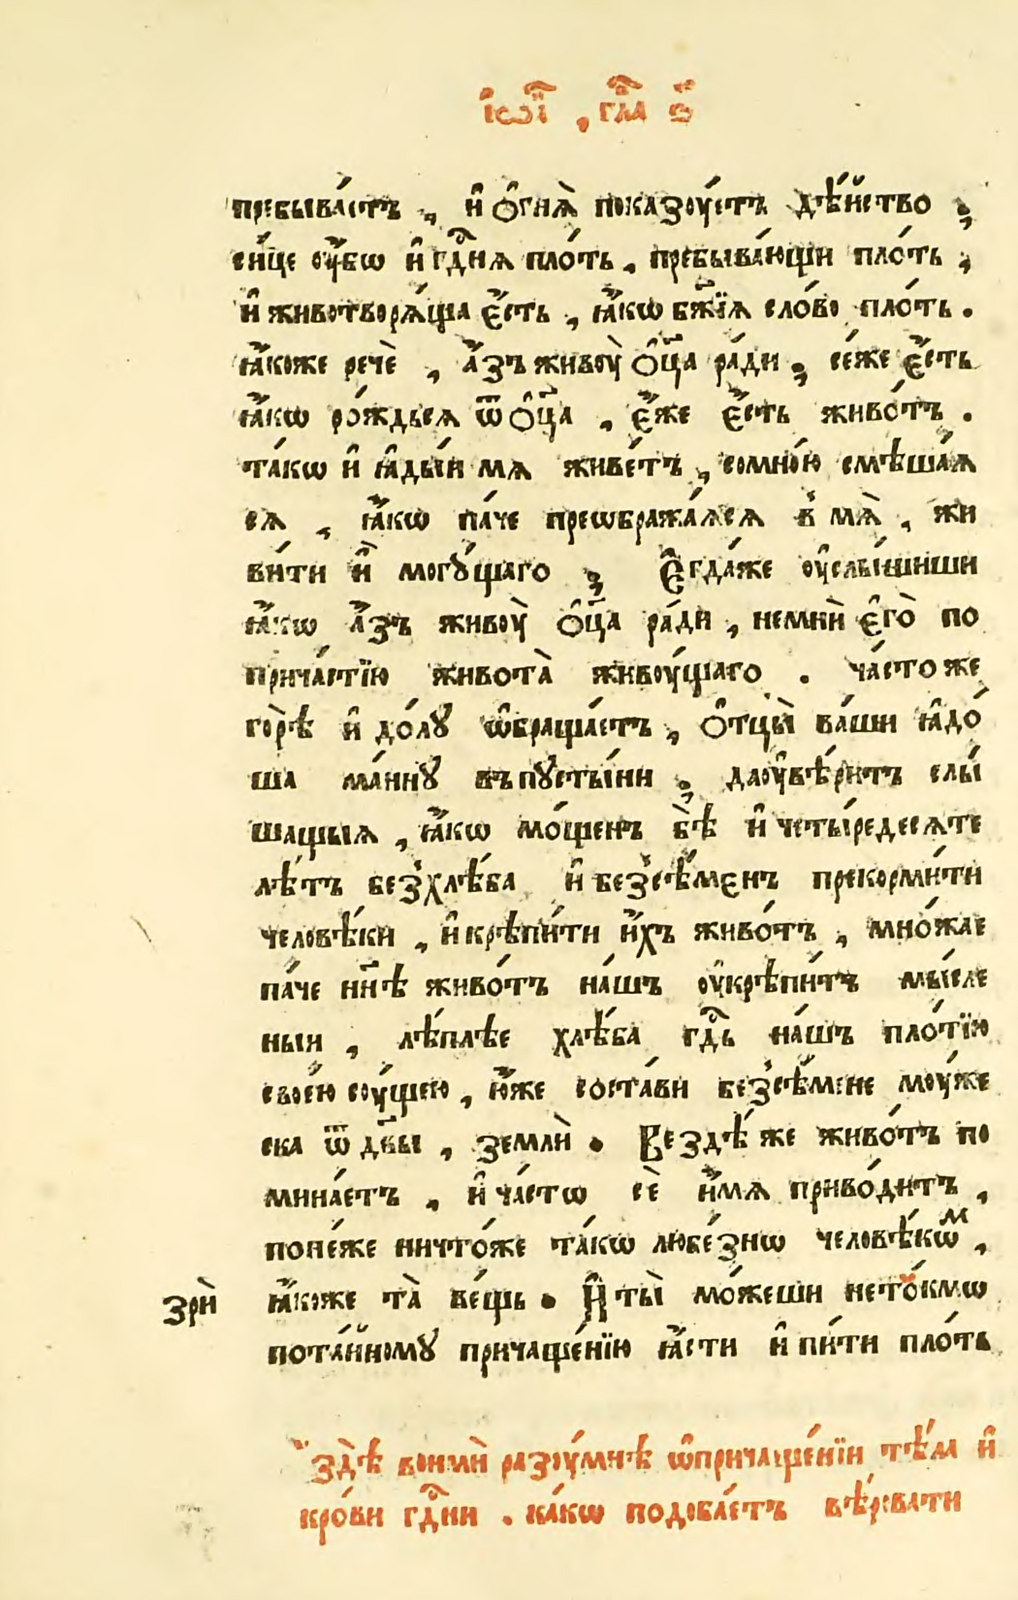 і҆ѡ҃і , гла҃ ѕ҃
пребыва́етъ , и҆ ѻ҆гнѧ̀ показꙋ́етъ дѣ́йство ;
си́це ᲂу҆́бѡ и҆ гд҇нѧ пло́ть , пребыва́ющи пло́ть ;
и҆ животворѧ́ща є҆́сть , ꙗ҆́кѡ бж҃їѧ сло́во пло́ть .
ꙗ҆́коже речѐ , а҆́зъ живоу̀ ѻ҆ц҃а ра́ди ; се́же є҆́сть
ꙗ҆́кѡ ро́ждьсѧ ѿ ѻ҆ц҃а , є҆́же є҆́сть живо́тъ .
та́кѡ и҆ ꙗ҆ды́и мѧ живе́тъ , сомно́ю смѣша́ѧ
сѧ , ꙗ҆́кѡ па́че преѡбража́ѧсѧ в҆ мѧ̀ , жи
ви́ти и҆̀ могꙋ́щаго ; Є҆гда́же ᲂу҆слы́шиши
ꙗ҆́кѡ а҆́зъ живоу̀ ѻ҆ц҃а ра́ди , немнѝ є҆го̀ по
прича́стїю живота̀ живоу́щаго . ча́стоже
го́рѣ и҆ до́лꙋ ѡ҆браща́етъ , ѻ҆тцы̀ ва́ши ꙗ҆до́
ша ма́ннꙋ въпꙋсты́ни ; даᲂу҆вѣ́ритъ слы́
шащыѧ , ꙗ҆́кѡ мо́щенъ бѣ̀ и҆ четы́редесѧте
лѣ́тъ безхлѣ́ба и҆ безсѣ́мѧнъ прекорми́ти
человѣ́ки , и҆ крѣпи́ти и҆́хъ живо́тъ , мно́жае
па́че нн҃ѣ живо́тъ на́шъ ᲂу҆крѣпи́тъ мы́сле
ныи , лѣ́плѣе хлѣ́ба гд҇ь на́шъ пло́тїю
свое́ю соу́щею , ю҆́же соста́ви безсѣ́мене моу́же
ска ѿ дв҃ы , землѝ . Вездѣ́ же живо́тъ по
мина́етъ , и҆ ча́стѡ сѐ и҆́мѧ приво́дитъ ,
поне́же ничто́же та́кѡ любе́знѡ человѣ́кѡм ,
зрѝ ꙗ҆́коже та̀ ве́щь . И҆ ты̀ мо́жеши нето́кмѡ
пота́йномꙋ причаще́нїю ꙗ҆́сти и҆ пи́ти пло́ть
здѣ̀ вонмѝ разоу́мнѣ ѡ҆причаще́нїи тѣ́ла и҆
кро́ви гд҇ни . ка́кѡ подоба́етъ вѣ́ровати